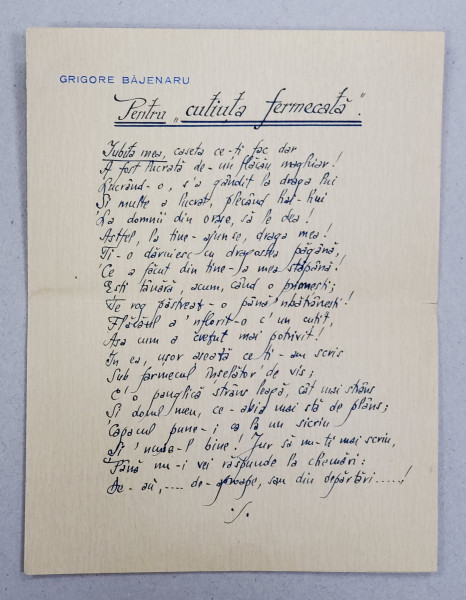 GRIGORE BĂJENARU
Pentru „cutiuța fermecată”.
Iubita mea, caseta ce-ți fac dar
A fost lucrată de-un flăcău maghiar!
Lucrând-o, s'a gândit la draga lui
Și multe a lucrat, plecând hai-hui
La domnii din orașe, să le dea!
Astfel, la tine-ajunse, draga mea!
Ți-o dăruiesc cu dragostea păgână,
Ce a făcut din tine-a mea stăpână!
Ești tânără, acum, când o primești;
Te rog păstreaz-o până 'nbătrânești!
Flăcăul a 'nflorit-o c'un cuțit,
Așa cum a crezut mai potrivit!
In ea, ușor așează ce ți-am scris
Sub farmecul înșelător de vis;
C'o panglică strâns leagă, cât mai strâns
Și dorul meu, ce-abia mai stă de plâns;
Capacul pune-i ca la un sicriu
Și 'ncuie-l bine! Jur să nu-ți mai scriu,
Până nu-i vei răspunde la chemări:
De-au, .... de-aproape, sau din depărtări.....!